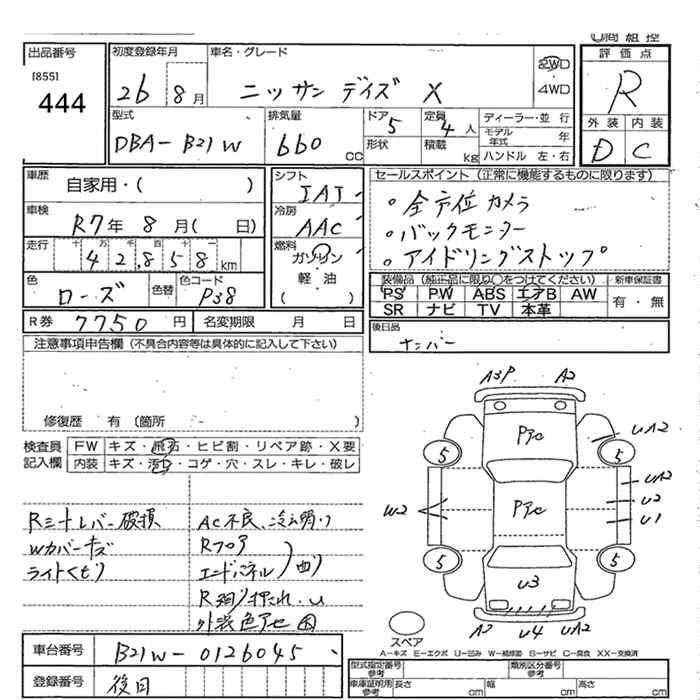 出品番号
[855]
444
初度登録年月
26 8月
車名・グレード
ニッサン デイズ X
2WD
4WD
評価点
R
外装 内装
D C
型式
DBA-B21W
排気量
660 CC
ドア
5
形状
定員
4人
積載 kg
ディーラー・並行
モデル年式 年
ハンドル 左・右
車歴
自家用・( )
車検
R7年 8月( 日)
走行
十万千百十一
42,858 km
色
ローズ
色替
色コード
P38
シフト
IAT
冷房
AAC
燃料
ガソリン
軽・油
( )
セールスポイント(正常に機能するものに限ります)
。全方位カメラ
。バックモニター
。アイドリングストップ
装備品(純正品に限り○をつけてください)
新車保証書
PS PW ABS エアB AW
SR ナビ TV 本革
有・無
R券 7750円
名変期限 月 日
後日品
ナンバー
注意事項申告欄(不具合内容等は具体的に記入して下さい)
修復歴 有(箇所 )
検査員記入欄
FW キズ・飛石・ヒビ割・リペア跡・X要
内装 キズ・汚れ・コゲ・穴・スレ・キレ・破レ
Rシートレバー破損
Wカバーキズ
ライトくもり
AC不良、
Rフロア
エンドパネル
外装色アセ
A3P A2
Pアピ
UA2
5 5
UA2
W2
U2
Pアピ
U1
5 5
U3
A2 U4 UA2
スペア
A-キズ E-エクボ U-凹み W-補修跡 S-サビ C-腐食 XX-交換済
車台番号
B21W-0126045
登録番号
後日
型式指定番号 参考
類別区分番号 参考
車庫証明用 参考
長さ cm
幅 cm
高さ cm